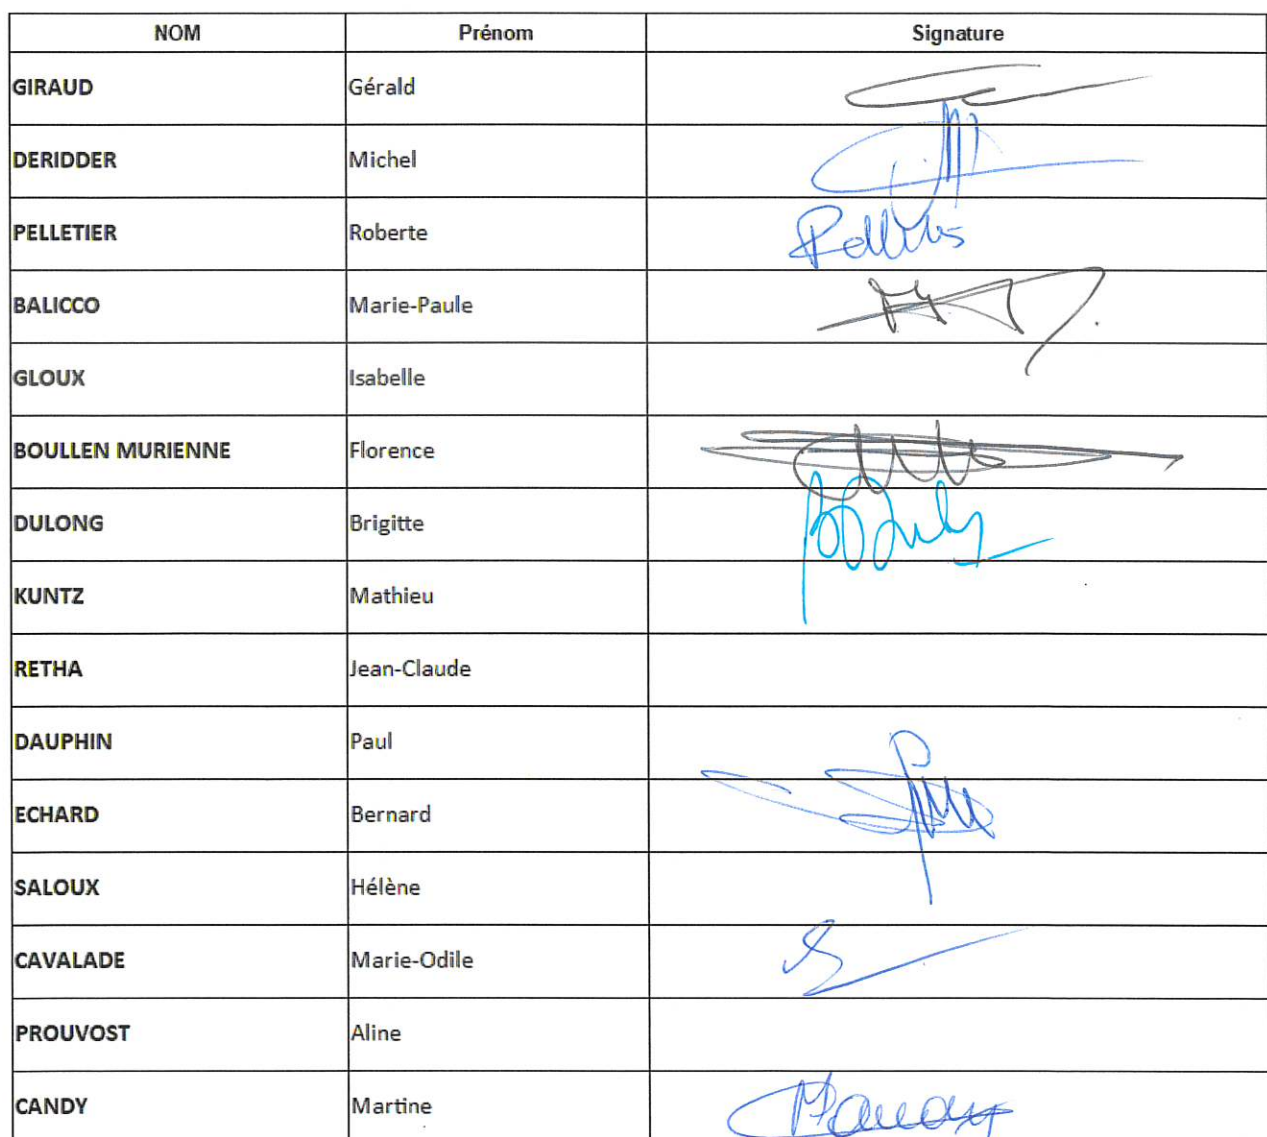 NOM Prénom Signature
GIRAUD Gérald
DERIDDER Michel
PELLETIER Roberte
BALICCO Marie-Paule
GLOUX Isabelle
BOULLEN MURIENNE Florence
DULONG Brigitte
KUNTZ Mathieu
RETHA Jean-Claude
DAUPHIN Paul
ECHARD Bernard
SALOUX Hélène
CAVALADE Marie-Odile
PROUVOST Aline
CANDY Martine